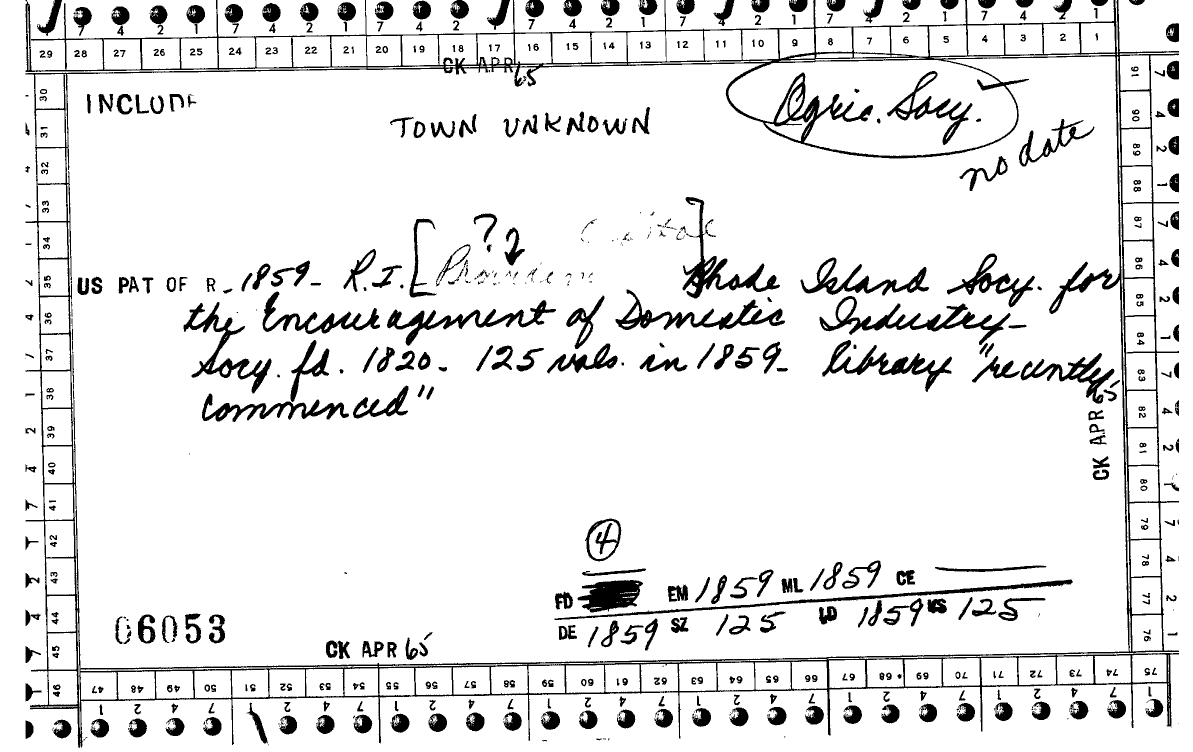 7 4 2 1 7 4 2 1 7 4 2 1 7 4 2 1 7 4 2 1 7 4 2 1 7 4 2 1
29 28 27 26 25 24 23 22 21 20 19 18 17 16 15 14 13 12 11 10 9 8 7 6 5 4 3 2 1
CK APR 65
INCLUDE
TOWN UNKNOWN
Agric. Socy.
no date
?
Capital
US PAT OF R - 1859 - R.I. [Providen ] Rhode Island Socy. for
the Encouragement of Domestic Industry -
Socy. fd. 1820 - 125 vols. in 1859 - library "recently
commenced"
CK APR 65
4
FD EM 1859 ML 1859 CE
DE 1859 SZ 125 LD 1859 VS 125
06053
CK APR 65
30 31 32 33 34 35 36 37 38 39 40 41 42 43 44 45 46
91 90 89 88 87 86 85 84 83 82 81 80 79 78 77 76
47 48 49 50 51 52 53 54 55 56 57 58 59 60 61 62 63 64 65 66 67 68 69 70 71 72 73 74 75